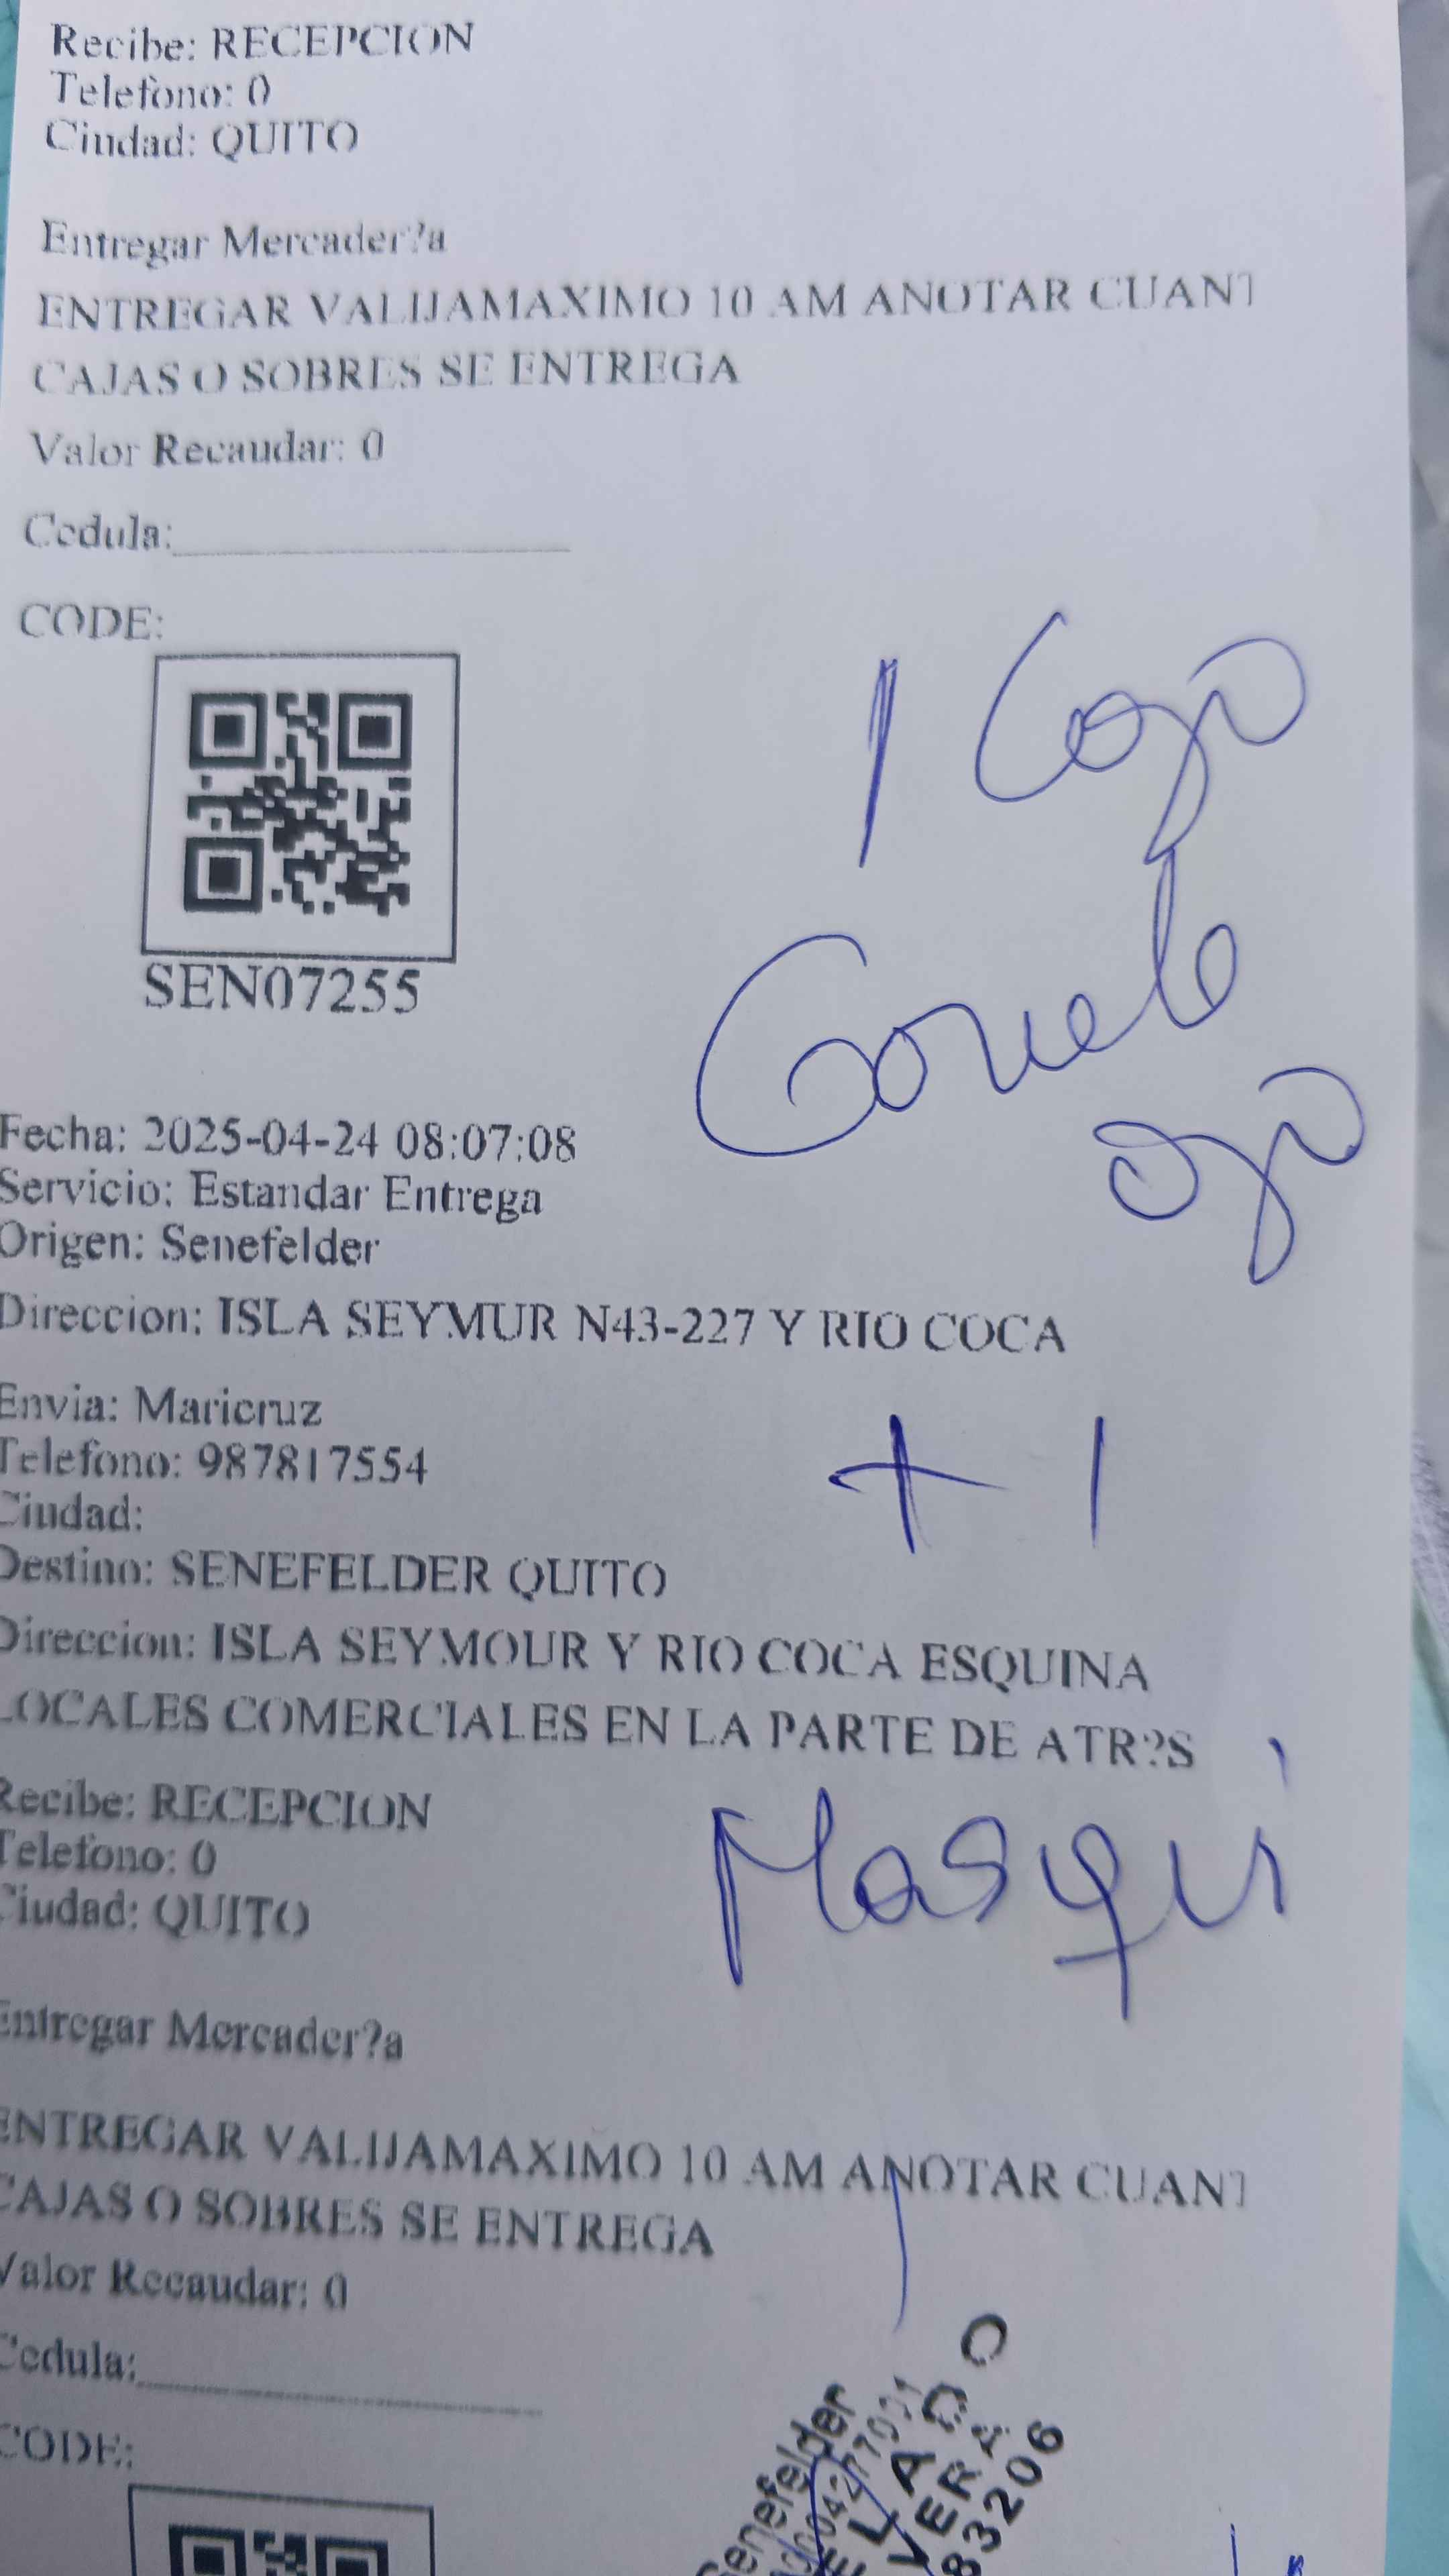 Recibe: RECEPCION
Telefono: 0
Ciudad: QUITO
Entregar Mercader?a
ENTREGAR VALIJAMAXIMO 10 AM ANOTAR CUANT
CAJAS O SOBRES SE ENTREGA
Valor Recaudar: 0
Cedula:
CODE:
1
SEN07255
Fecha: 2025-04-24 08:07:08
Servicio: Estandar Entrega
Origen: Senefelder
Direccion: ISLA SEYMUR N43-227 Y RIO COCA
Envia: Maricruz
Telefono: 987817554
+ 1
Ciudad:
Destino: SENEFELDER QUITO
Direccion: ISLA SEYMOUR Y RIO COCA ESQUINA
LOCALES COMERCIALES EN LA PARTE DE ATR?S
Recibe: RECEPCION
Telefono: 0
Ciudad: QUITO
Masqui
Entregar Mercader?a
ENTREGAR VALIJAMAXIMO 10 AM ANOTAR CUANT
CAJAS O SOBRES SE ENTREGA
Valor Recaudar: 0
Cedula:
CODE:
Senefelder